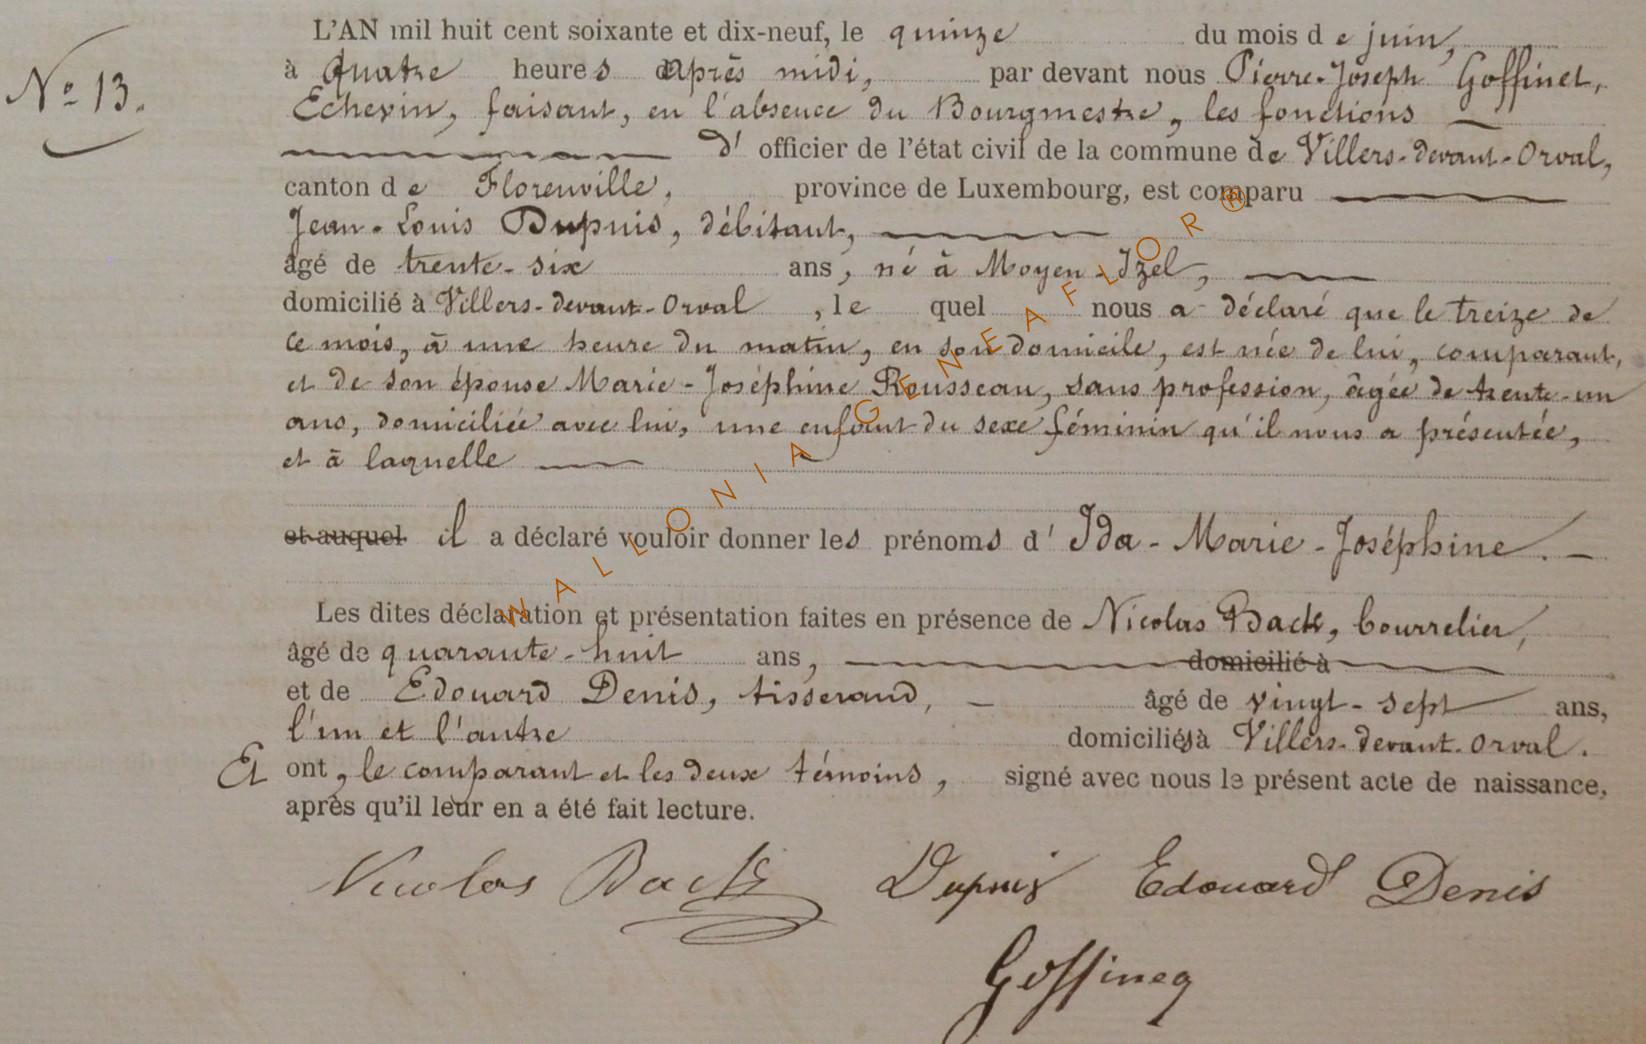 L'AN mil huit cent soixante et dix-neuf, le quinze du mois de juin,
N° 13.
à quatre heures après midi, par devant nous Pierre-Joseph Goffinet,
Echevin, faisant, en l'absence du Bourgmestre, les fonctions
d' officier de l'état civil de la commune de Villers-devant-Orval,
canton de Florenville, province de Luxembourg, est comparu
Jean-Louis Dupuis, débitant,
âgé de trente-six ans, né à Moyen-Izel,
domicilié à Villers-devant-Orval, le quel nous a déclaré que le treize de
ce mois, à une heure du matin, en son domicile, est née de lui, comparant,
et de son épouse Marie-Joséphine Rousseau, sans profession, âgée de trente-un
ans, domiciliée avec lui, une enfant du sexe féminin qu'il nous a présentée,
et à laquelle
et auquel il a déclaré vouloir donner les prénoms d' Ida-Marie-Joséphine.
Les dites déclaration et présentation faites en présence de Nicolas Back, bourrelier,
âgé de quarante-huit ans, domicilié à
et de Edouard Denis, tisserand, âgé de vingt-sept ans,
l'un et l'autre domiciliés à Villers-devant-Orval.
Et ont, le comparant et les deux témoins, signé avec nous le présent acte de naissance,
après qu'il leur en a été fait lecture.
Nicolas Back Dupuis Edouard Denis
WALLONIA GENEAFLOR ®